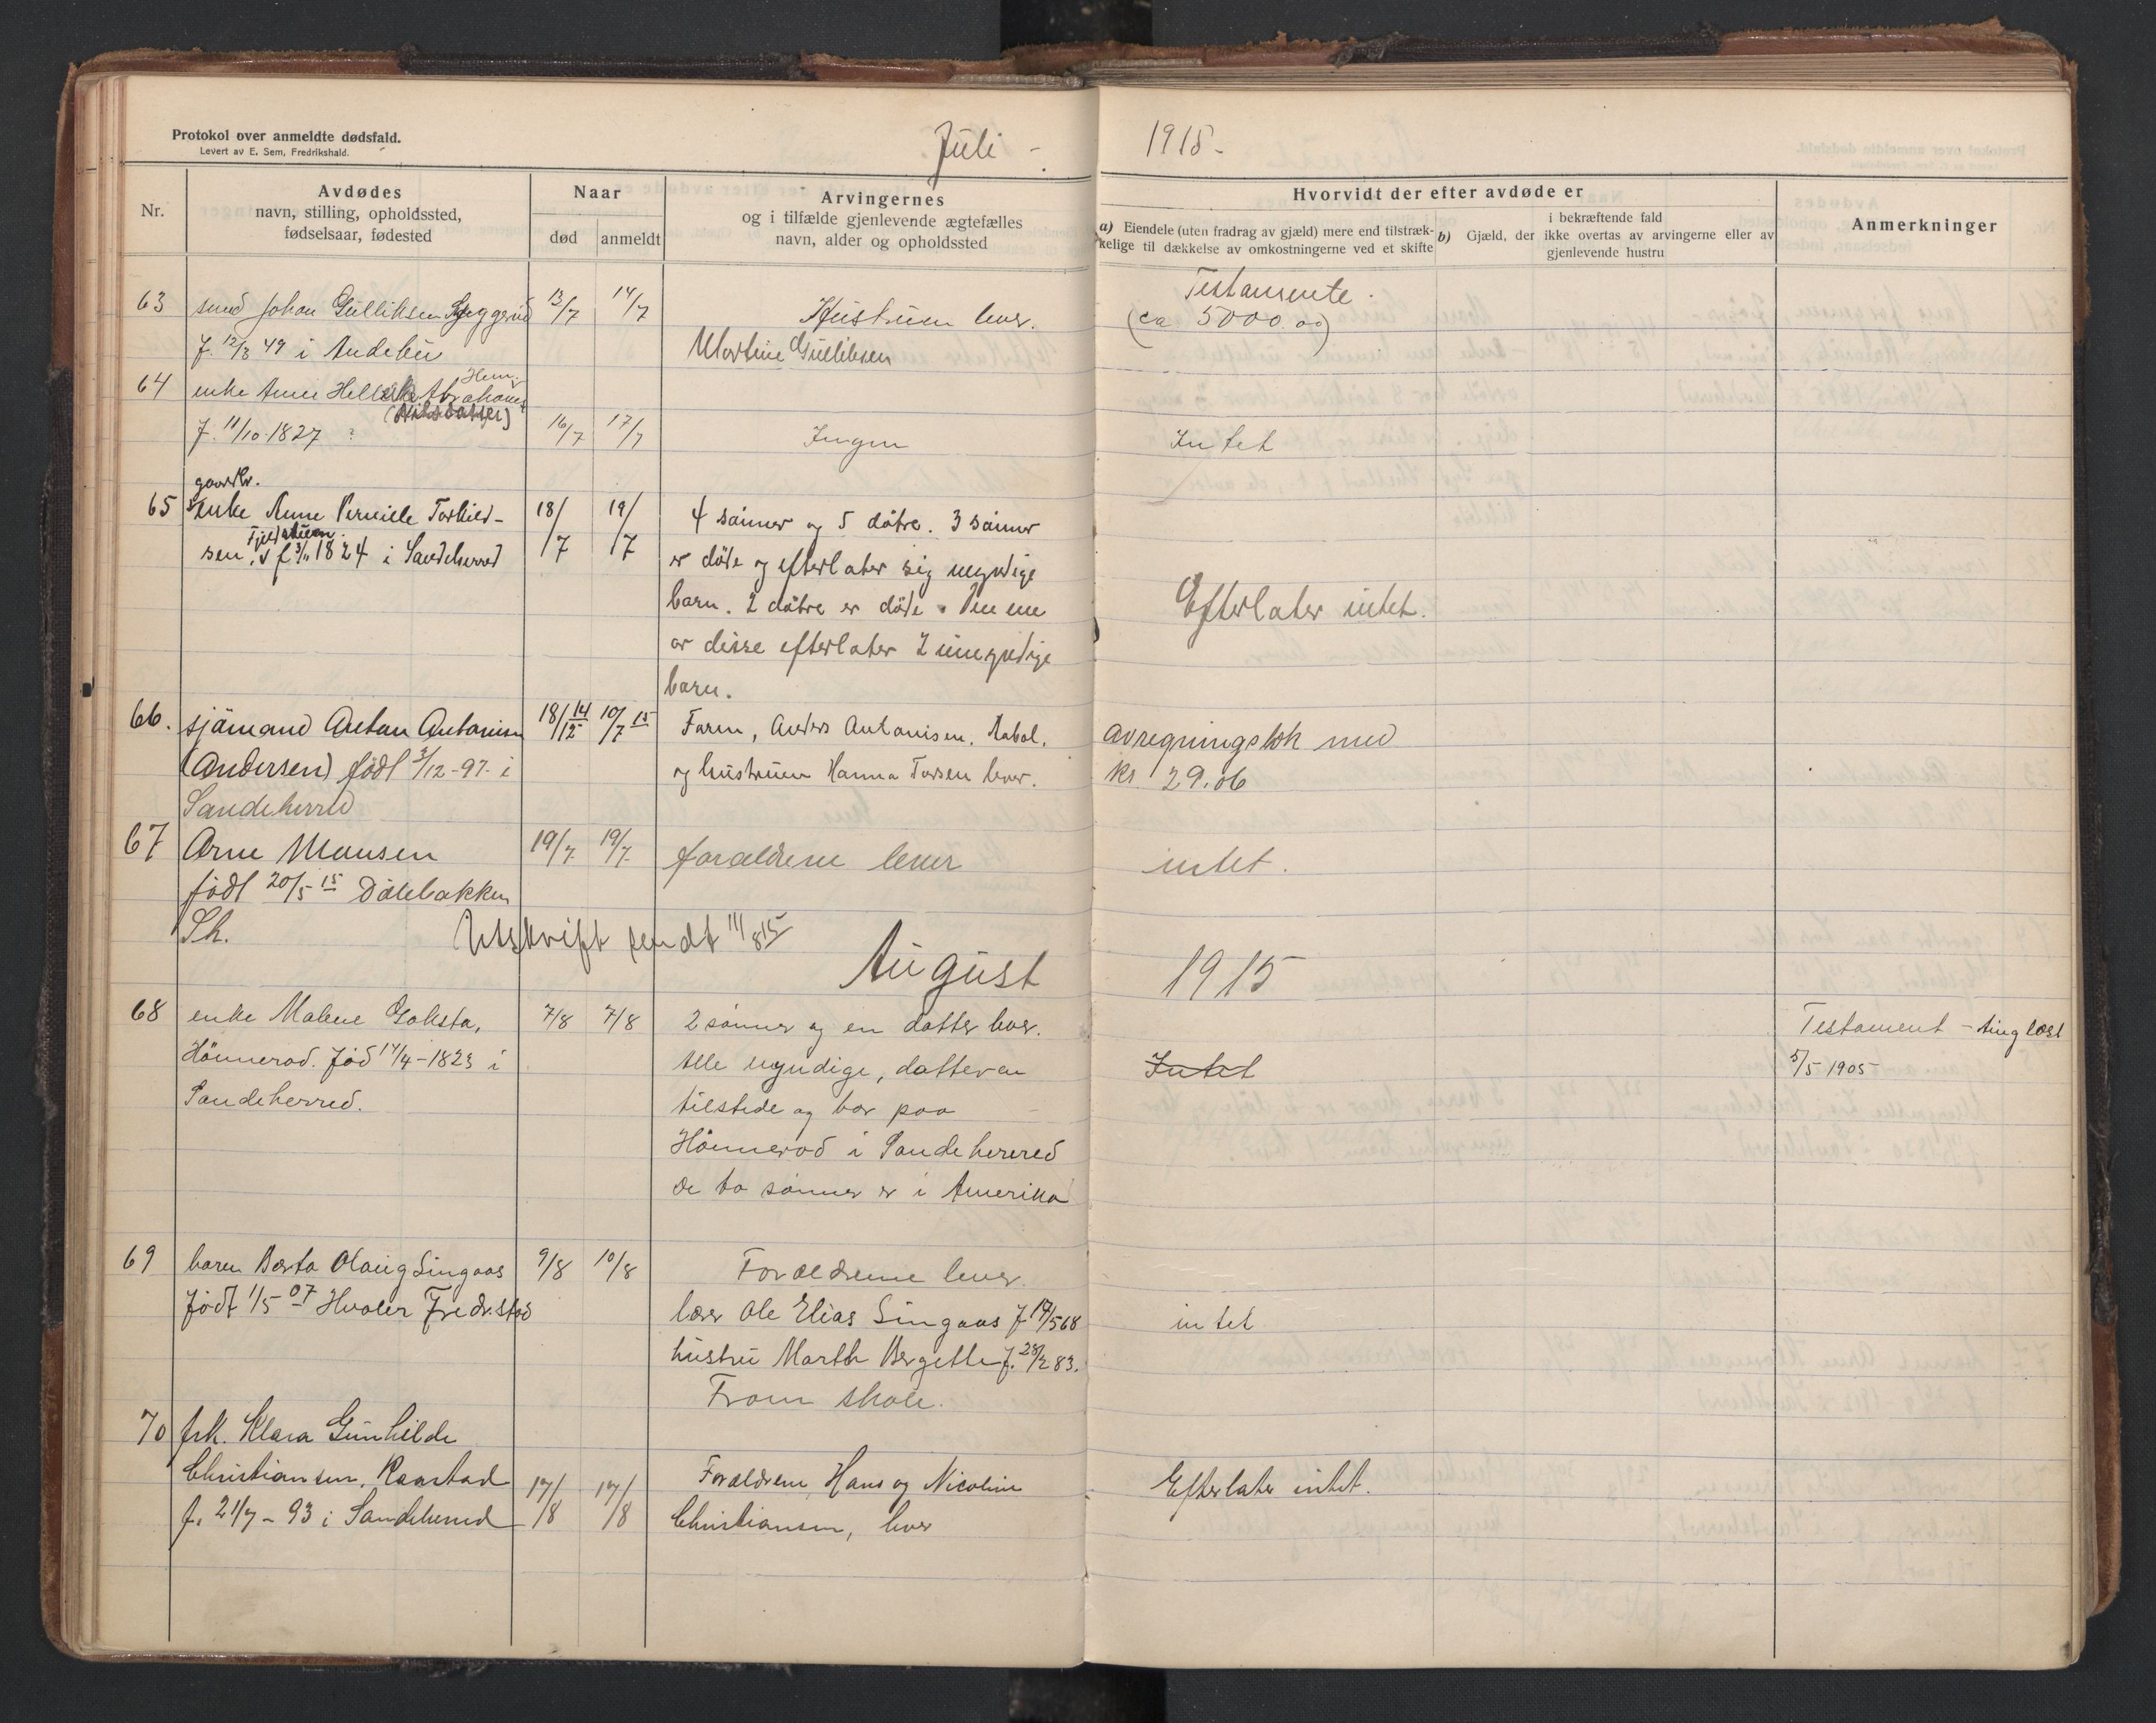 Protokol over anmeldte dødsfald.
Levert av E. Sem, Fredrikshald.
Juli - 1915-
Nr.
Avdødes
navn, stilling, opholdssted,
fødselsaar, fødested
Naar
død
anmeldt
Arvingernes
og i tilfælde gjenlevende ægtefælles
navn, alder og opholdssted
Hvorvidt der efter avdøde er
a) Eiendele (uten fradrag av gjæld) mere end tilstræk-
kelige til dækkelse av omkostningerne ved et skifte
i bekræftende fald
b) Gjæld, der ikke overtas av arvingerne eller av
gjenlevende hustru
Anmerkninger
63 smed Johan Gulliksen 13/7 14/7 Hustruen lever. Testamente.
f. 12/3 49 i Andebu Martine Gulliksen (ca 5000.00)
64 enke Anne Abrahams
f. 11/10-1827 16/7 17/7 Ingen Intet
gaardbr.
65 enke Anne Pernille Torkild- 18/7 19/7 4 sönner og 5 dötre. 3 sönner
sen, f 3/11 1824 i Sandeherred er döde og efterlater sig myndige
barn. 2 dötre er döde. Den ene Efterlater intet.
av disse efterlater 2 umyndige
barn.
66. sjömand Anton Antonisen 18/12 14 10/7 15 Faren, Anders Antonisen, avregningsbok med
(Andersen) född 3/12-97- i og hustruen Hanna lever. kr 29.06
Sandeherred
67 Arne Monsen 19/7 19/7. foraldrene lever intet.
födt 20/5 15 Dölebakken
Sh. Utskrift sendt 11/8 15
August 1915
68 enke Malene Goksta, 7/8 7/8 2 sönner og en datter lever. Testament - tinglæst
Hönnerod. född 14/4-1823 i Alle myndige, datteren Intet 5/5 1905
Sandeherred. tilstede og bor paa
Hönnerod i Sandeherred
de to sönner er i Amerika
69 barn Berta Olaug Singaas 9/8 10/8 Foraldrene lever.
født 1/5 07 Hvaler Fredr.stad lærer Ole Elias Singaas f 17/5 68 intet
hustru Marth Bergette f. 28/2 83.
Fram skole.
70 frk. Klara Gunhilde
Christiansen, Raastad 17/8 17/8 Forældrene, Hans og Nicoline Efterlater intet.
f. 21/7-93 i Sandeherred Christiansen, lever